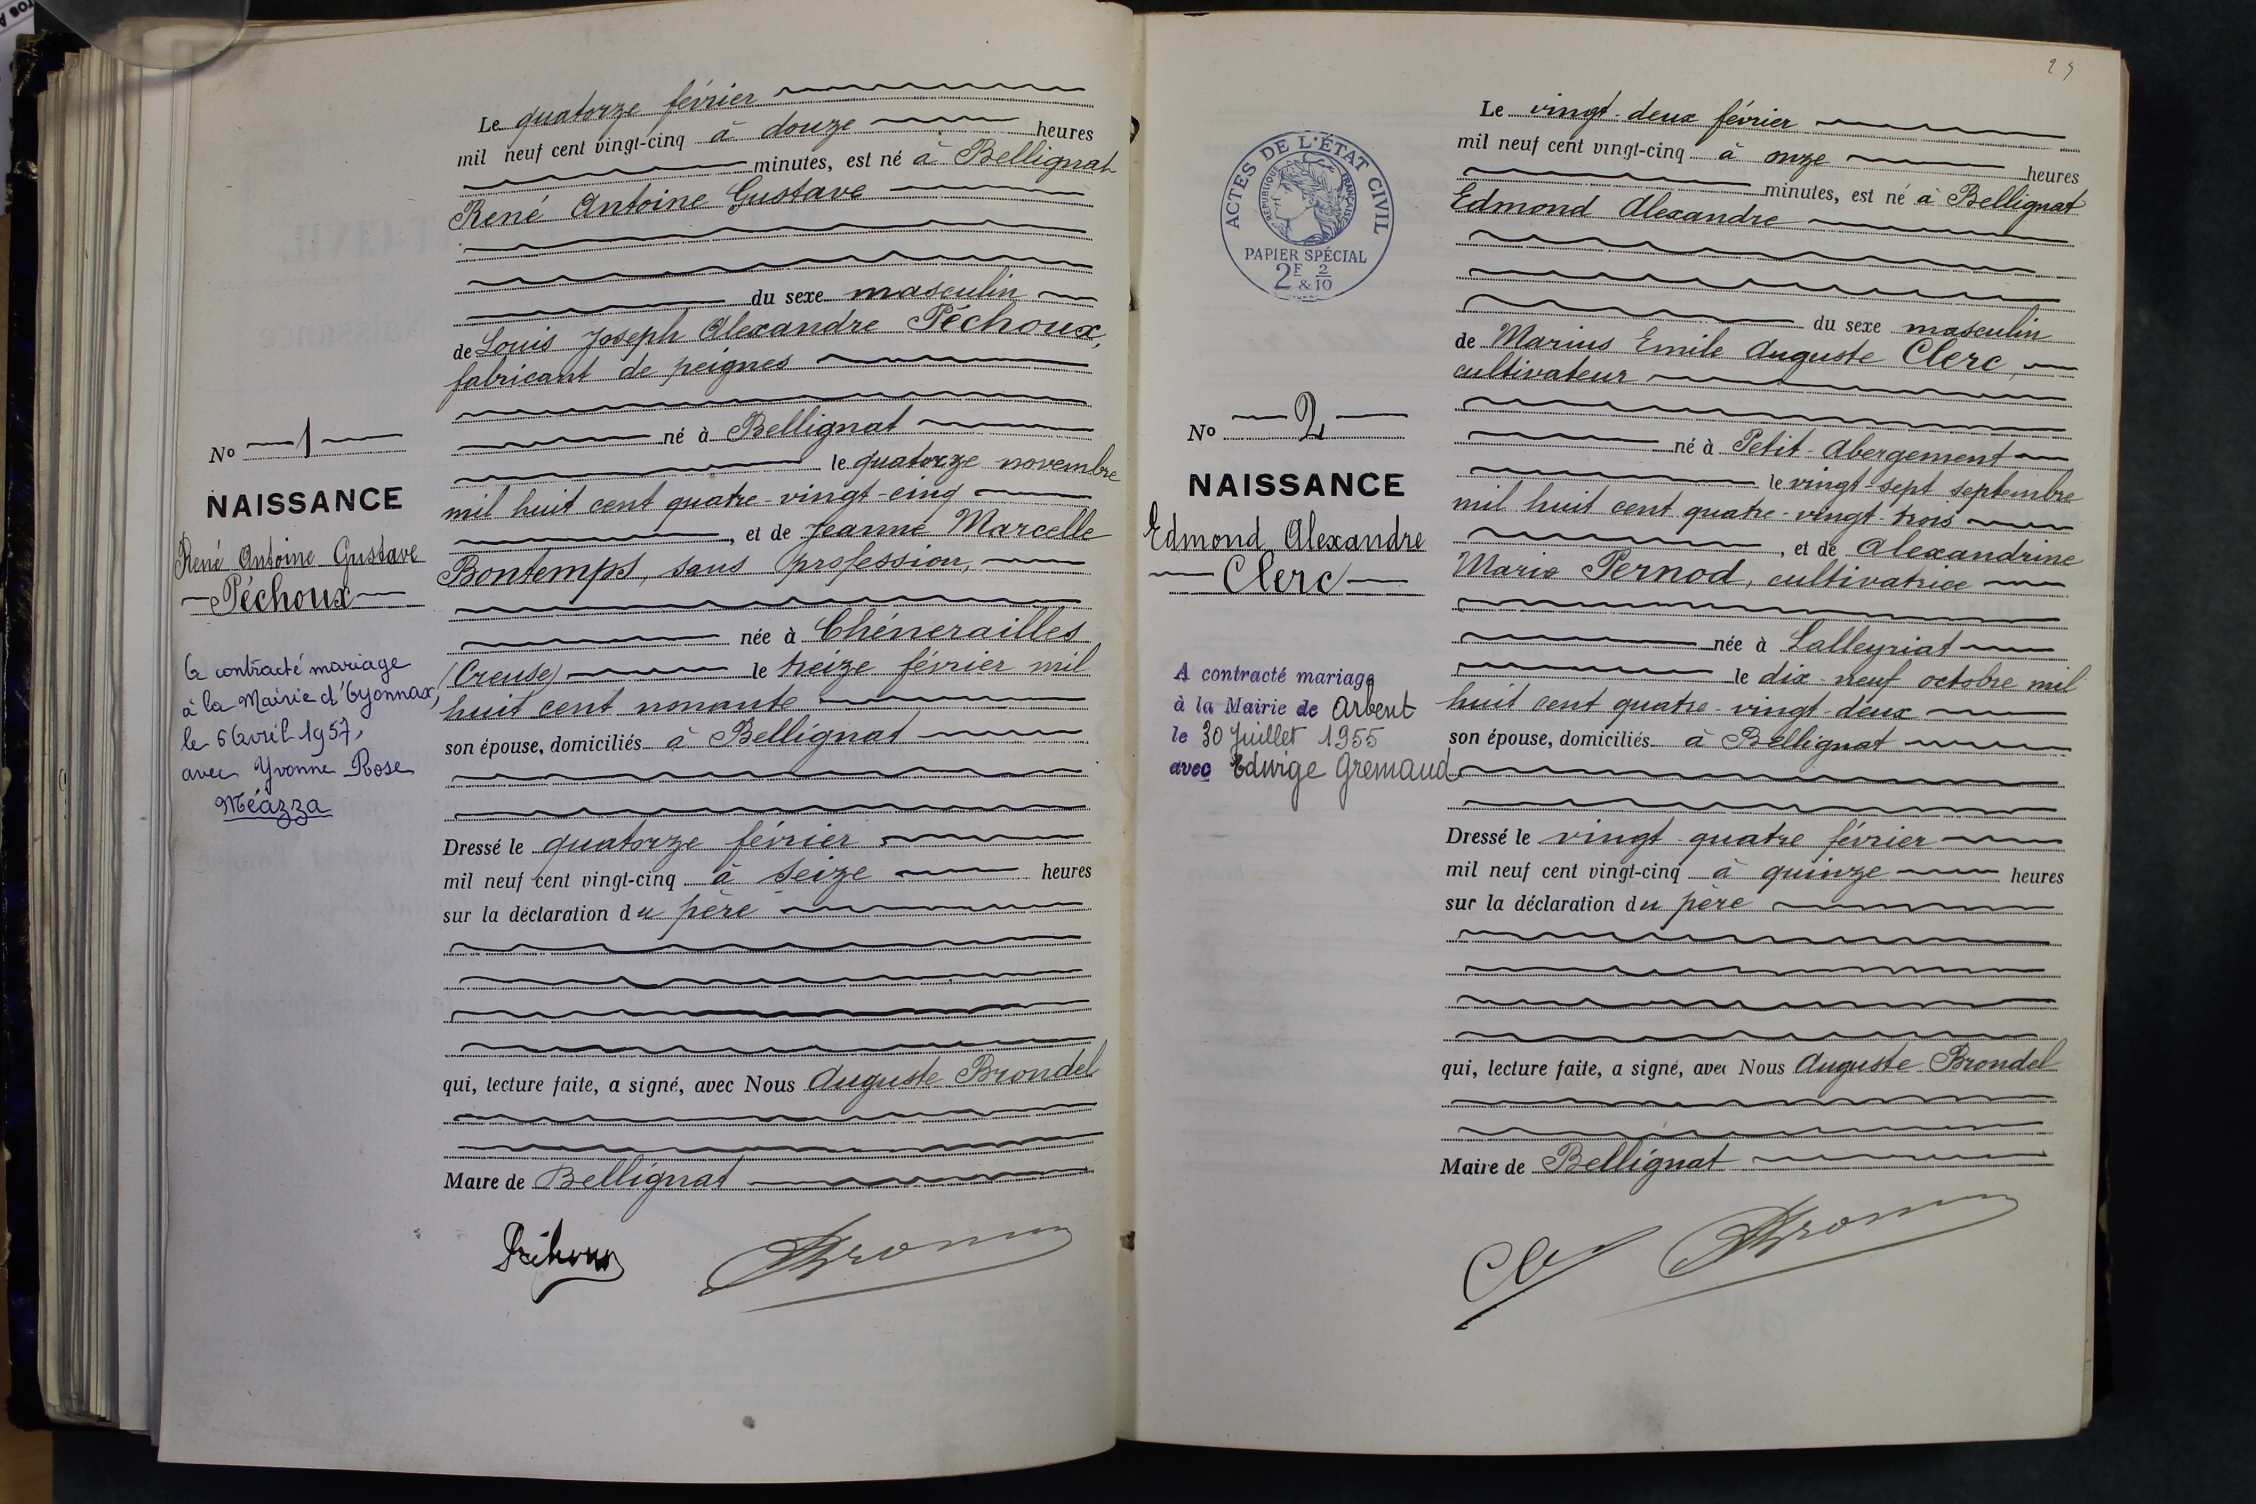 Le quatorze février
mil neuf cent vingt-cinq à douze heures
minutes, est né à Bellignat
René Antoine Gustave
du sexe masculin
de Louis Joseph Alexandre Péchoux,
fabricant de peignes
né à Bellignat
le quatorze novembre
mil huit cent quatre-vingt-cinq
, et de Jeanne Marcelle
Bontemps, sans profession,
née à Chénerailles
(Creuse) le treize février mil
huit cent nonante
son épouse, domiciliés à Bellignat
Dressé le quatorze février
mil neuf cent vingt-cinq à seize heures
sur la déclaration du père
qui, lecture faite, a signé, avec Nous Auguste Brondel
Maire de Bellignat
Péchoux
No 1
NAISSANCE
René Antoine Gustave
Péchoux
A contracté mariage
à la Mairie d'Oyonnax,
le 6 Avril 1957,
avec Yvonne Rose
Méazza
ACTES DE L'ÉTAT CIVIL
RÉPUBLIQUE FRANÇAISE
PAPIER SPÉCIAL
2F & 2/10
No 2
NAISSANCE
Edmond Alexandre
Clerc
A contracté mariage
à la Mairie de Arbent
le 30 Juillet 1955
avec Edwige Gremaud
Le vingt-deux février
mil neuf cent vingt-cinq à onze heures
minutes, est né à Bellignat
Edmond Alexandre
du sexe masculin
de Marius Emile Auguste Clerc,
cultivateur
né à Petit-Abergement
le vingt-sept septembre
mil huit cent quatre-vingt-trois
, et de Alexandrine
Marie Pernod, cultivatrice
née à Lalleyriat
le dix-neuf octobre mil
huit cent quatre-vingt-deux
son épouse, domiciliés à Bellignat
Dressé le vingt-quatre février
mil neuf cent vingt-cinq à quinze heures
sur la déclaration du père
qui, lecture faite, a signé, avec Nous Auguste Brondel
Maire de Bellignat